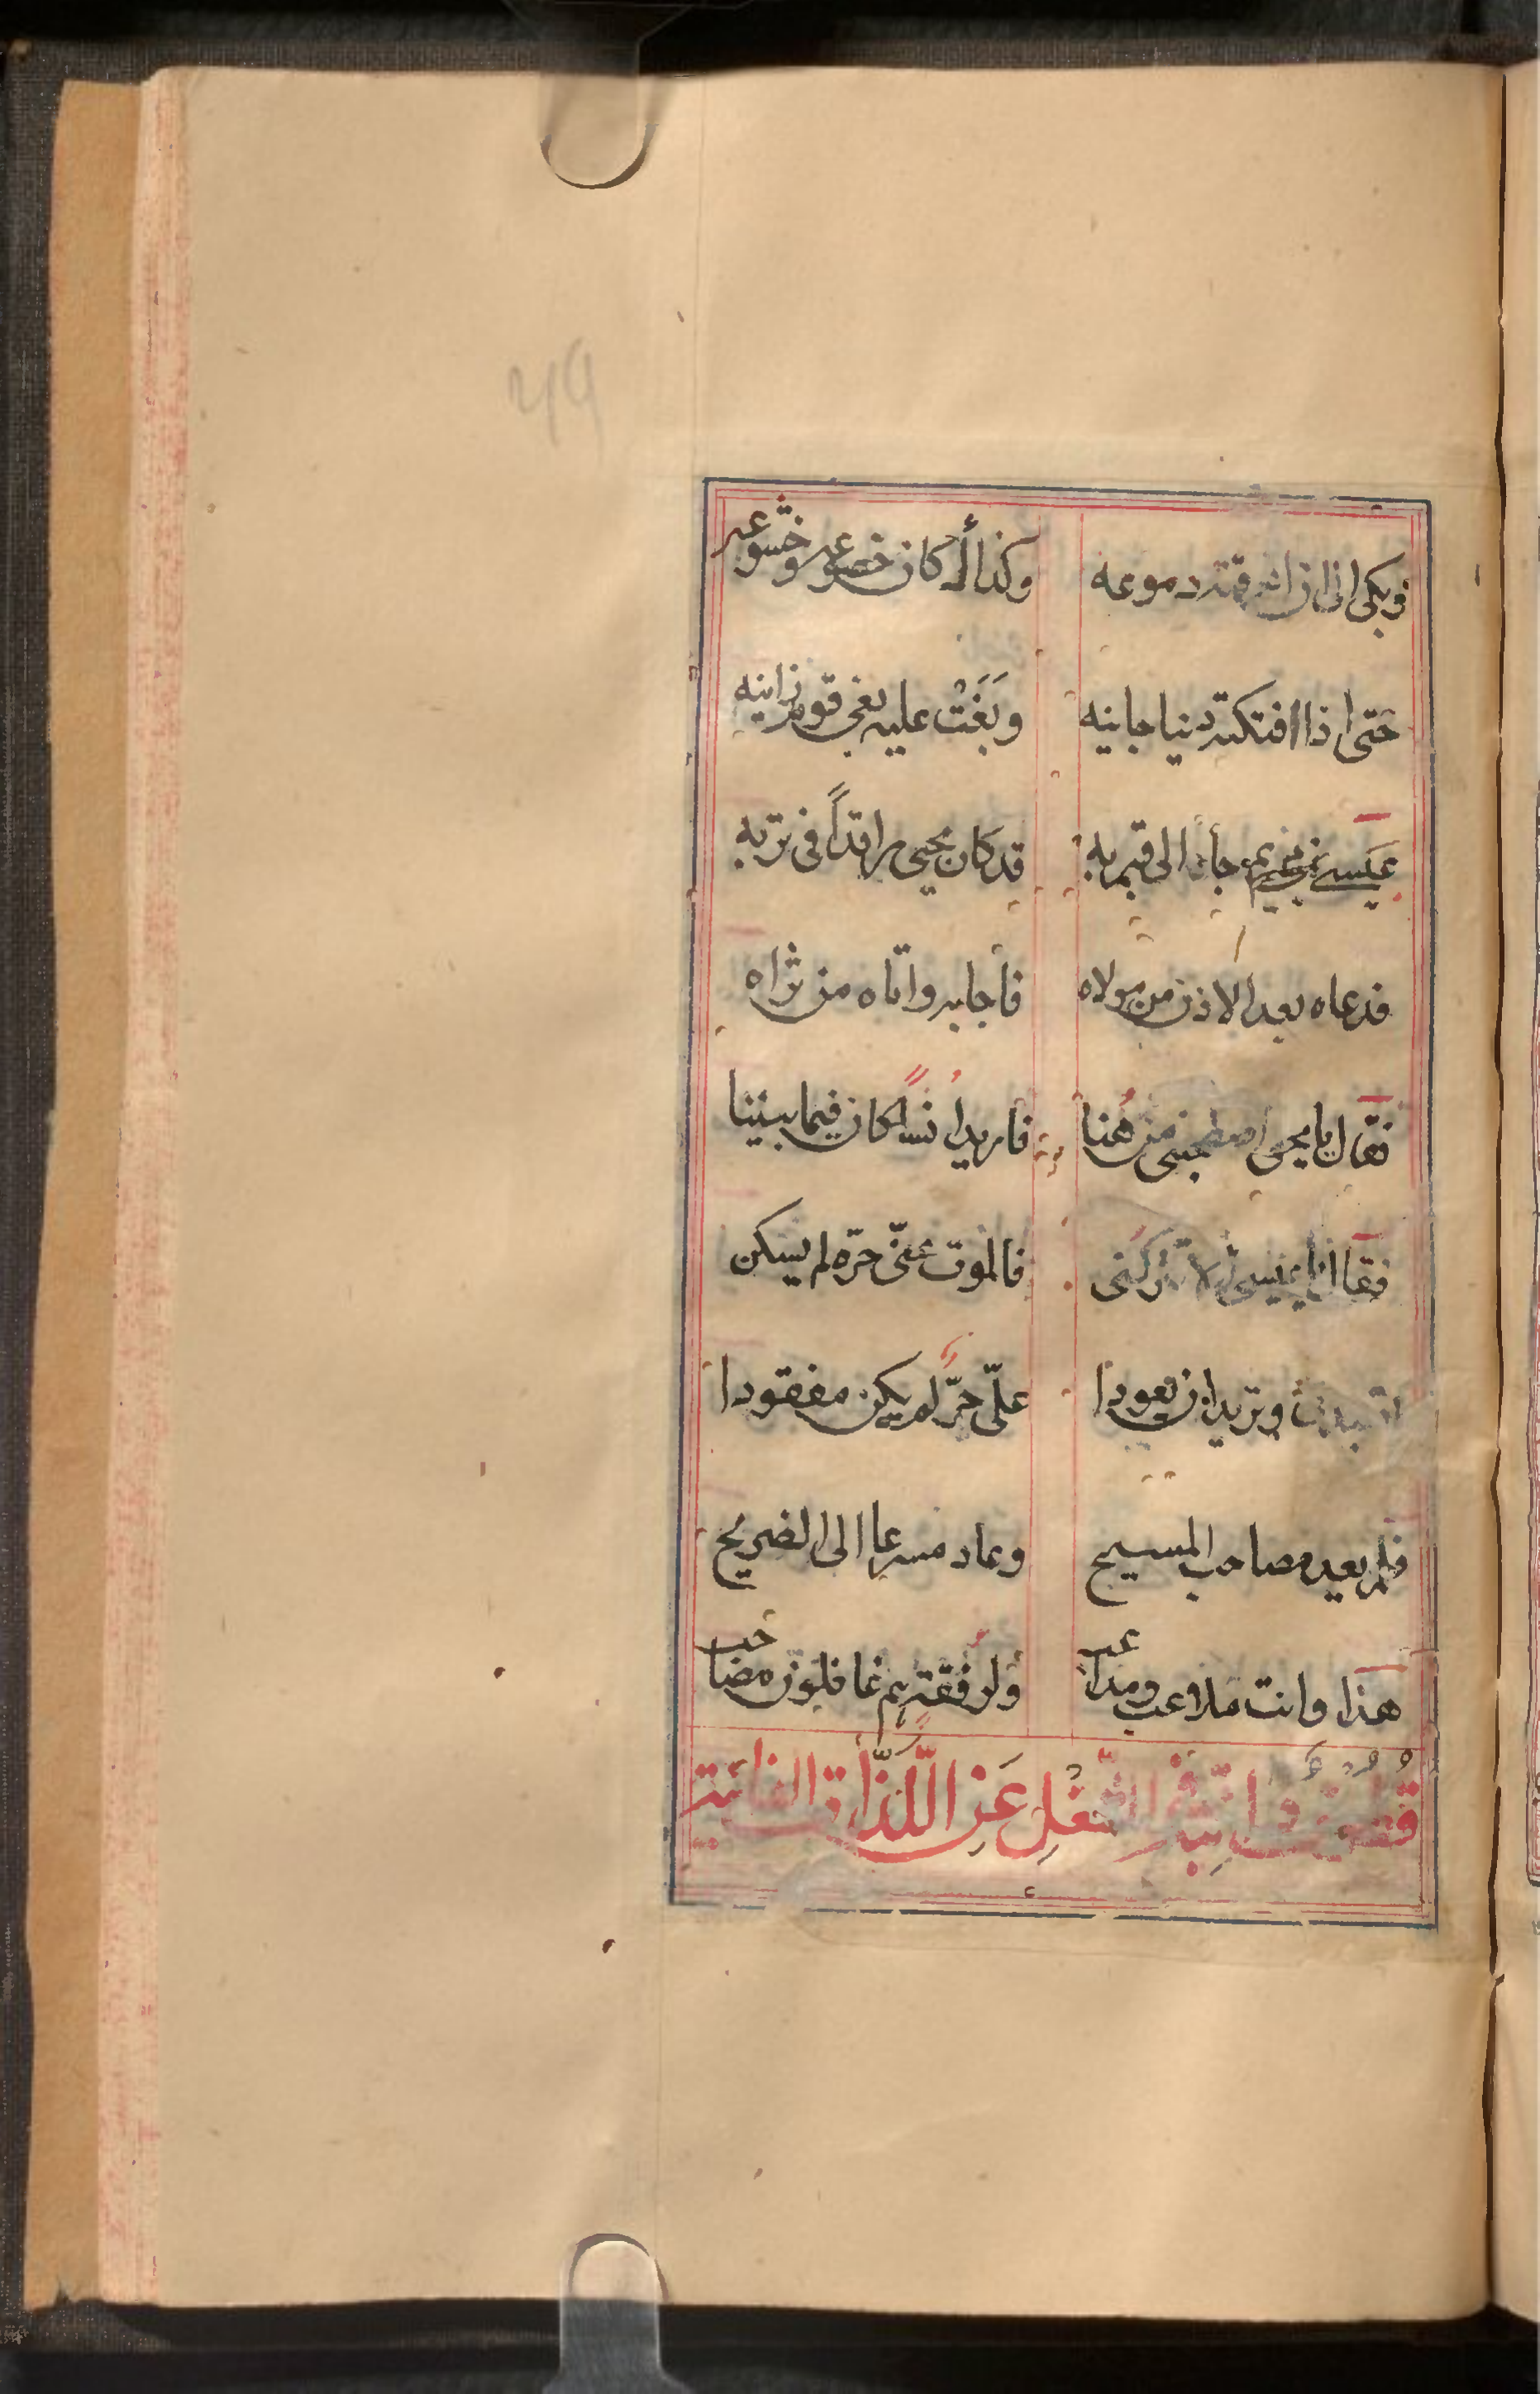 وبكى الى ان اغرقته دموعه وكذاك كان خضوعه وخشوعه
حتى اذا افتكته دنيا جانيه وبَغَتْ عليه بغي قوم زانيه
عيسى جأ الى قبر به قد كان يحيى راقداً فى تربه
فدعاه بعد الاذن من مولاه فأجابه واتاه من ثراه
فقال يا يحيى اصطحبنى من هُنا فاريد اُنساً كان فيما بيننا
فقال يا عيسى لا تتركنى فالموت عنّى حرّه لم يسكن
وتريد ان يعودا علىّ حرّ لم يكن مفقودا
فلم يعد مصاحب المسيح وعاد مسرعا الى الضريح
هذا وانت ملاعب ومداعب ولرفقةٍ هم غافلون مصاحب
عَنِ اللَّذّاتِ الفانية